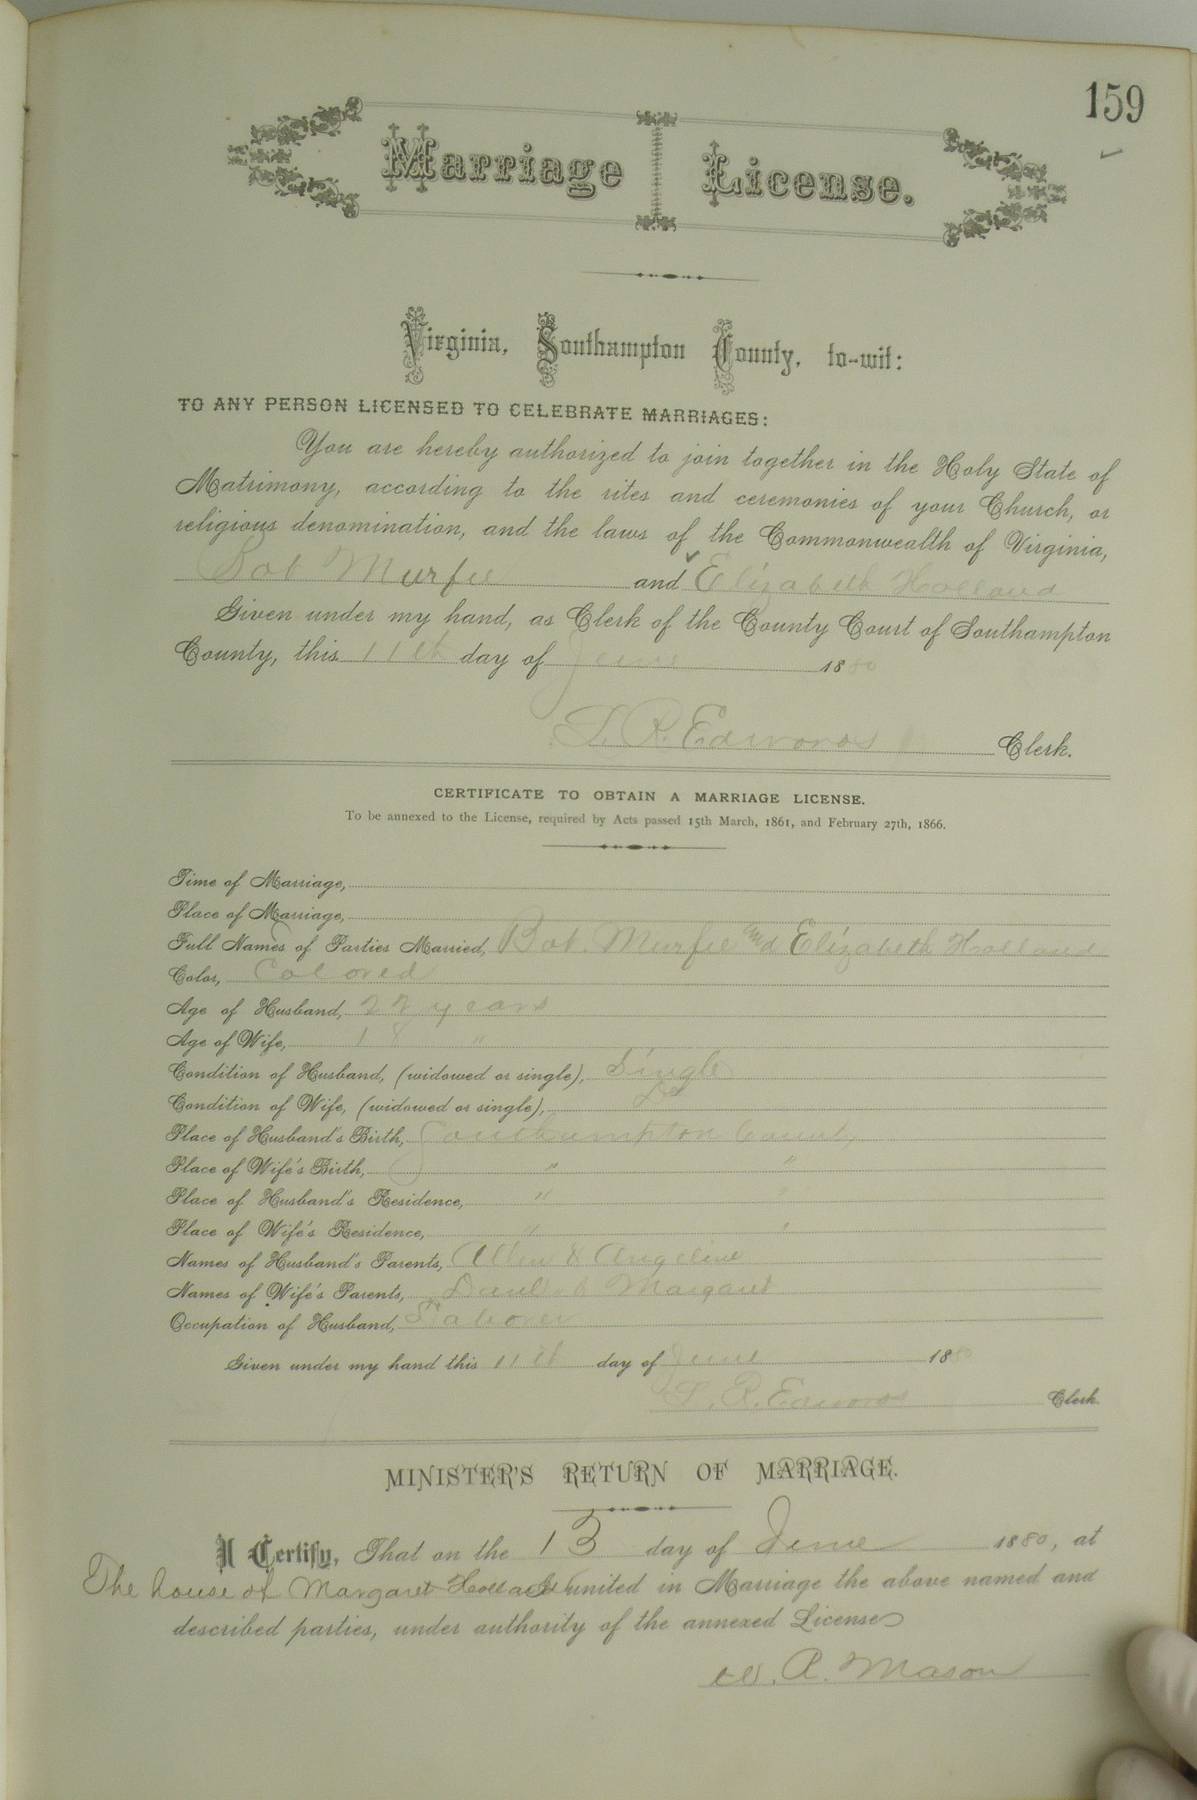 159
Marriage License.
Virginia, Southampton County, to-wit:
TO ANY PERSON LICENSED TO CELEBRATE MARRIAGES:
You are hereby authorized to join together in the Holy State of
Matrimony, according to the rites and ceremonies of your Church, or
religious denomination, and the laws of the Commonwealth of Virginia,
Bob Murfee and Elizabeth Holland
Given under my hand, as Clerk of the County Court of Southampton
County, this 11th day of June 1880
L. R. Edwards Clerk.
CERTIFICATE TO OBTAIN A MARRIAGE LICENSE.
To be annexed to the License, required by Acts passed 15th March, 1861, and February 27th, 1866.
Time of Marriage,
Place of Marriage,
Full Names of Parties Married, Bob Murfee and Elizabeth Holland
Color, Colored
Age of Husband, 22 years
Age of Wife, 18 "
Condition of Husband, (widowed or single), Single
Condition of Wife, (widowed or single), Do
Place of Husband's Birth, Southampton County
Place of Wife's Birth, " "
Place of Husband's Residence, " "
Place of Wife's Residence, " "
Names of Husband's Parents, Allen & Angeline
Names of Wife's Parents, & Margaret
Occupation of Husband, Laborer
Given under my hand this 11th day of June 1880
L. R. Edwards Clerk.
MINISTER'S RETURN OF MARRIAGE.
I Certify, That on the 13 day of June 1880, at
The house of Margaret Holland I united in Marriage the above named and
described parties, under authority of the annexed License
W. R. Mason